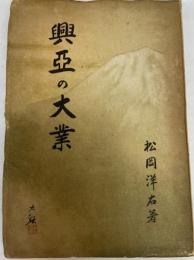 興亞の大業
松岡洋右著